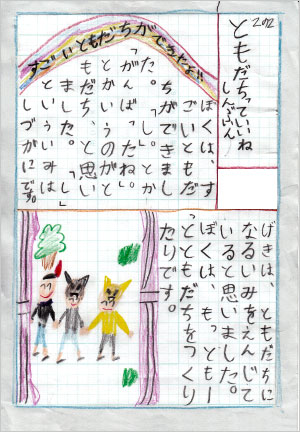 2012
ともだちっていいね
しんぶん
すごいともだちができたよ!!
ぼくは、す
ごいともだ
ちができまし
た。「し。」とか
「がんばったね。」
とかいうのがと
もだち、と思い
ました。「し」
といういみは
しづかにです。
げきは、ともだちに
なるいみをえんじて
いると思いました。
ぼくは、もっともー
っとともだちをつくり
たりです。